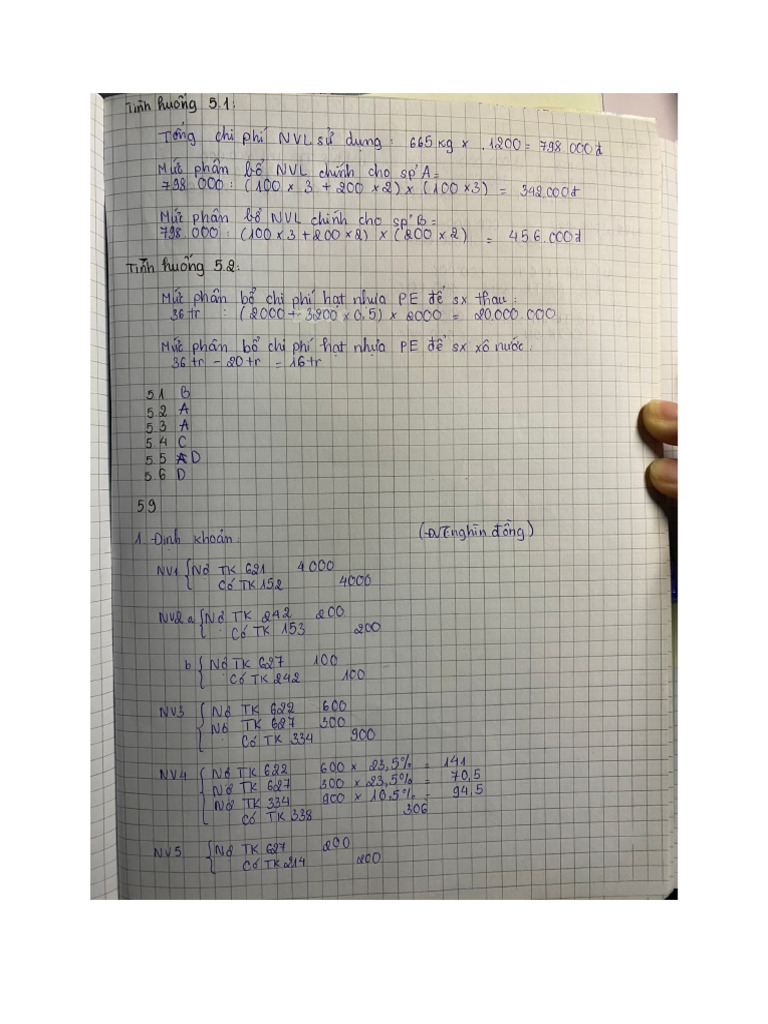 Tình huống 5.1:
Tổng chi phí NVL sử dụng: 665kg x .1200 = 798.000đ
Mức phân bổ NVL chính cho sp'A=
798.000: (100 x 3 + 200 x 2) x (100 x 3) = 342.000đ
Mức phân bổ NVL chính cho sp'B=
798.000: (100 x 3 + 200 x 2) x (200 x 2) = 456.000đ
Tình huống 5.2:
Mức phân bổ chi phí hạt nhựa PE để sx thau:
36tr : (2000 + 3200 x 0,5) x 2000 = 20.000.000
Mức phân bổ chi phí hạt nhựa PE để sx xô nước:
36tr - 20tr = 16tr
5.1 B
5.2 A
5.3 A
5.4 C
5.5 D
5.6 D
5.9
1. Định khoản: (ĐVT nghìn đồng)
NV1 { Nợ TK 621 4000
Có TK 152 4000
NV2 a { Nợ TK 242 200
Có TK 153 200
b { Nợ TK 627 100
Có TK 242 100
NV3 { Nợ TK 622 600
Nợ TK 627 300
Có TK 334 900
NV4 { Nợ TK 622 600 x 23,5% = 141
Nợ TK 627 300 x 23,5% = 70,5
Nợ TK 334 900 x 10,5% = 94,5
Có TK 338 306
NV5 { Nợ TK 627 200
Có TK 214 200